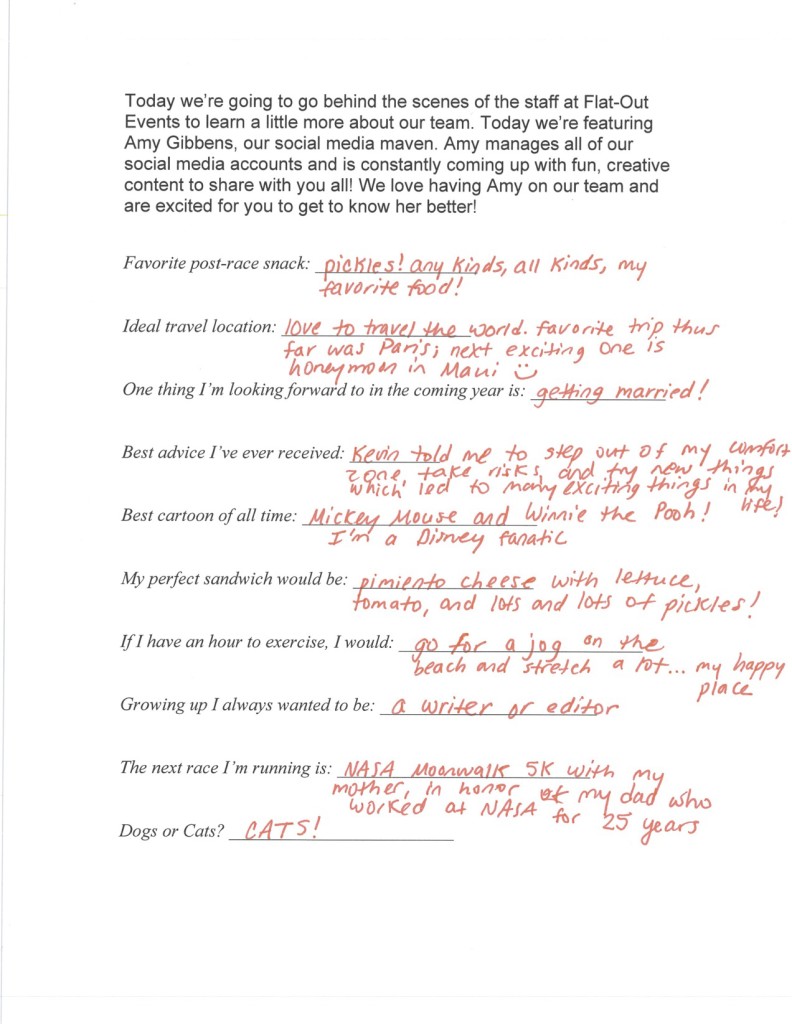 Today we're going to go behind the scenes of the staff at Flat-Out
Events to learn a little more about our team. Today we're featuring
Amy Gibbens, our social media maven. Amy manages all of our
social media accounts and is constantly coming up with fun, creative
content to share with you all! We love having Amy on our team and
are excited for you to get to know her better!
Favorite post-race snack: pickles! any kinds, all kinds, my
favorite food!
Ideal travel location: love to travel the world. favorite trip thus
far was Paris; next exciting one is
honeymoon in Maui
One thing I'm looking forward to in the coming year is: getting married!
Best advice I've ever received: Kevin told me to step out of my comfort
zone, take risks, and try new things
which led to many exciting things in my
life!
Best cartoon of all time: Mickey Mouse and Winnie the Pooh!
I'm a Disney fanatic
My perfect sandwich would be: pimiento cheese with lettuce,
tomato, and lots and lots of pickles!
If I have an hour to exercise, I would: go for a jog on the
beach and stretch a lot... my happy
place
Growing up I always wanted to be: a writer or editor
The next race I'm running is: NASA Moonwalk 5K with my
mother, in honor of my dad who
worked at NASA for 25 years
Dogs or Cats? CATS!